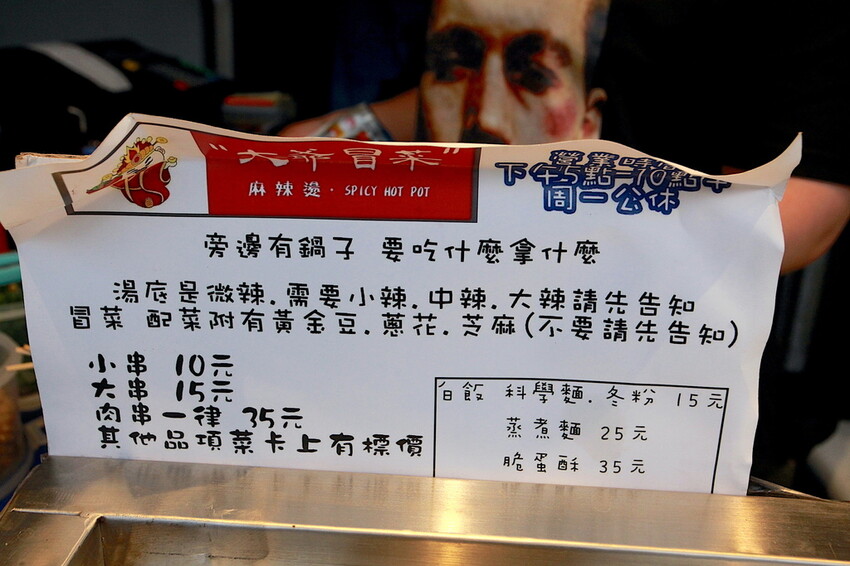 "大爺冒菜"
麻辣燙·SPICY HOT POT
營業時間
下午5點-10點半
周一公休
旁邊有鍋子 要吃什麼拿什麼
湯底是微辣.需要小辣.中辣.大辣請先告知
冒菜 配菜附有黃金豆.蔥花.芝麻(不要請先告知)
小串 10元
大串 15元
肉串一律 35元
其他品項菜卡上有標價
白飯 科學麵.冬粉 15元
蒸煮麵 25元
脆蛋酥 35元